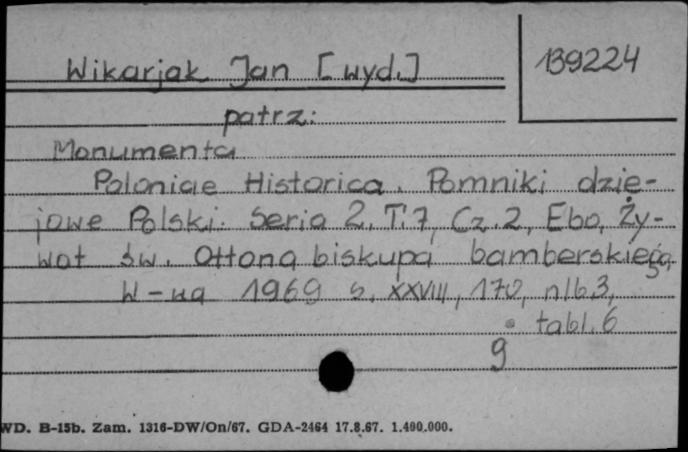 Wikarjak Jan [wyd.]
139224
patrz:
Monumenta
Poloniae Historica. Pomniki dzie-
jowe Polski. Seria 2, T. 7, Cz. 2, Ebo, Ży-
wot św. Ottona biskupa bamberskiego,
W-wa 1969 s. XXVIII, 170, nlb 3,
tabl. 6
9
WD. B-15b. Zam. 1316-DW/On/67. GDA-2464 17.8.67. 1.400.000.